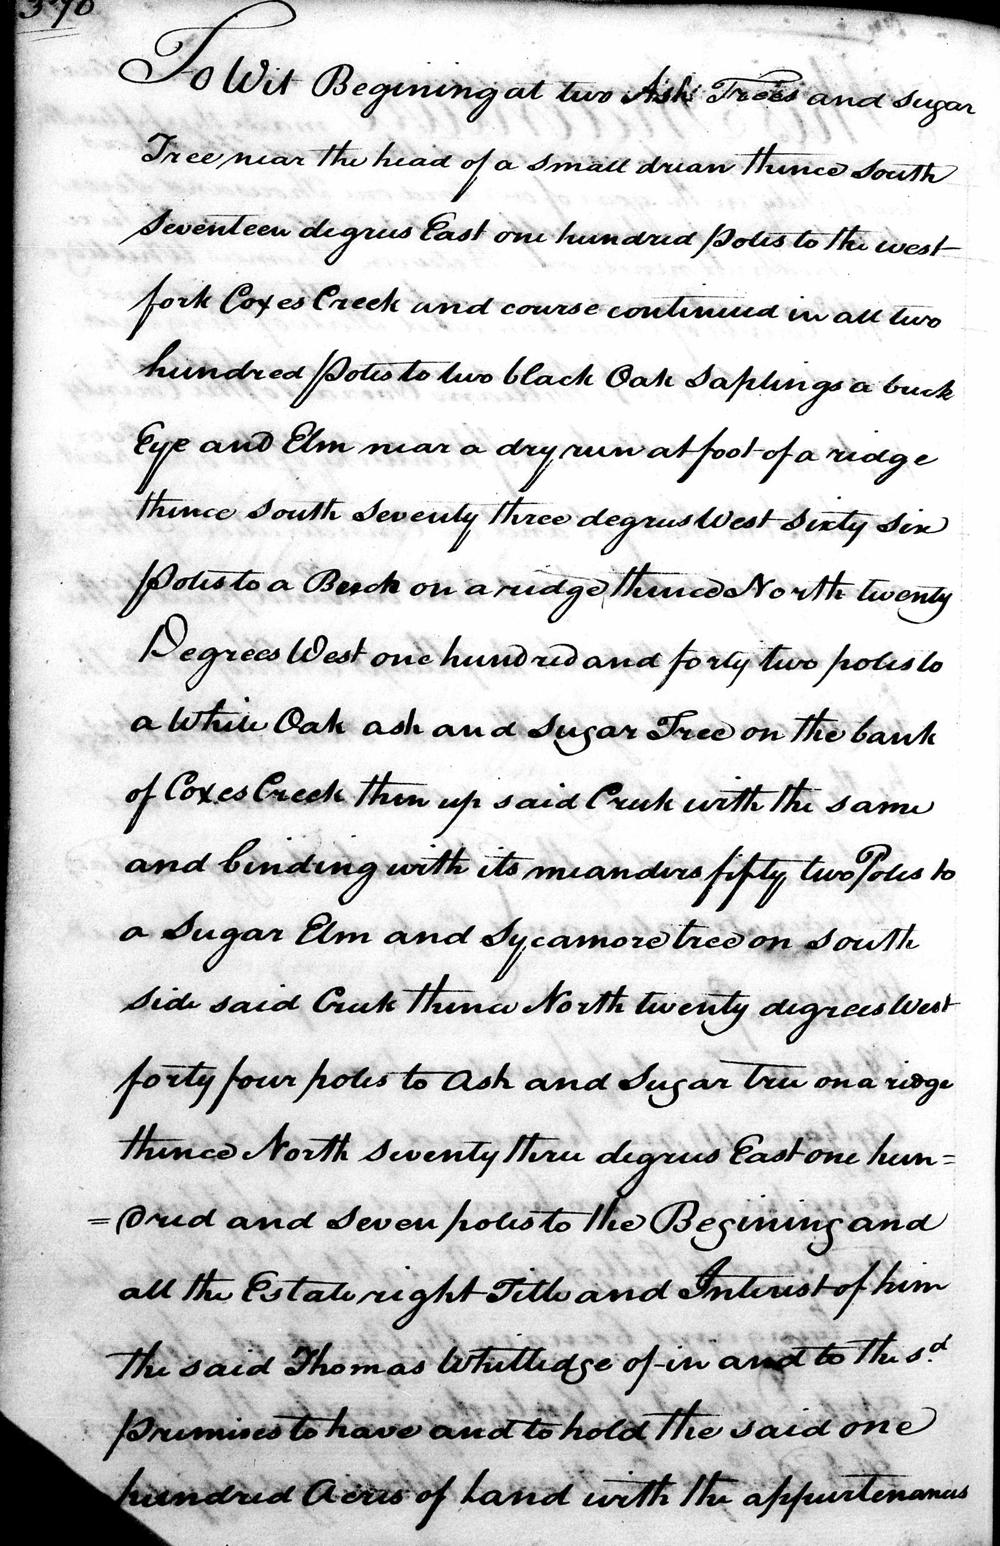 370
To Wit Begining at two Ash Trees and Sugar
Tree near the head of a small drian thence South
Seventeen degrees East one hundred Poles to the west
fork Coxes Creek and course continued in all two
hundred Poles to two black Oak Saplings a buck
Eye and Elm near a dry run at foot of a ridge
thence South Seventy three degrees West Sixty Six
Poles to a Beech on a ridge thence North twenty
Degrees West one hundred and forty two poles to
a White Oak ash and Sugar Tree on the bank
of Coxes Creek then up said Creek with the same
and binding with its meanders fifty two Poles to
a Sugar Elm and Sycamore tree on South
Side said Creek thence North twenty degrees West
forty four poles to Ash and Sugar tree on a ridge
thence North Seventy three degrees East one hun=
=dred and Seven poles to the Begining and
all the Estate right Title and Interest of him
the said Thomas Whitledge of in and to the sd.
Premises to have and to hold the said one
hundred Acres of Land with the appurtenances